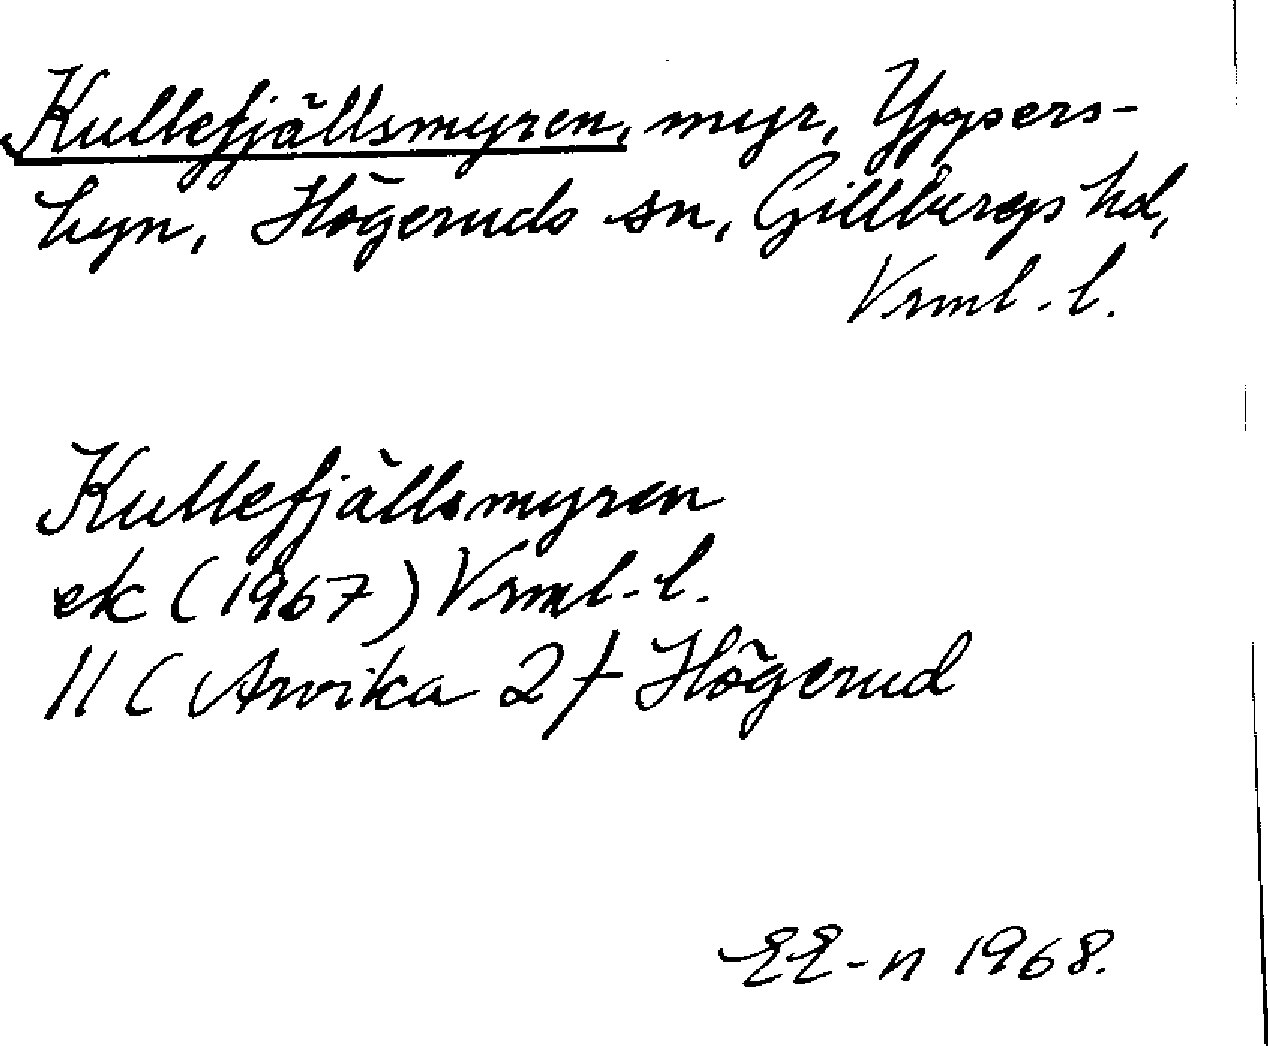 Kullefjällsmyren, myr, Yppers-
hyn, Högeruds sn, Gillbergs hd,
Vrml. l.
Kullefjällsmyren
ek (1967) Vrml. l.
11 C Arvika 2f Högerud
EE-n 1968.